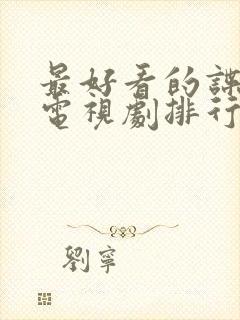 最好看的諜
電視劇排行
劉寧